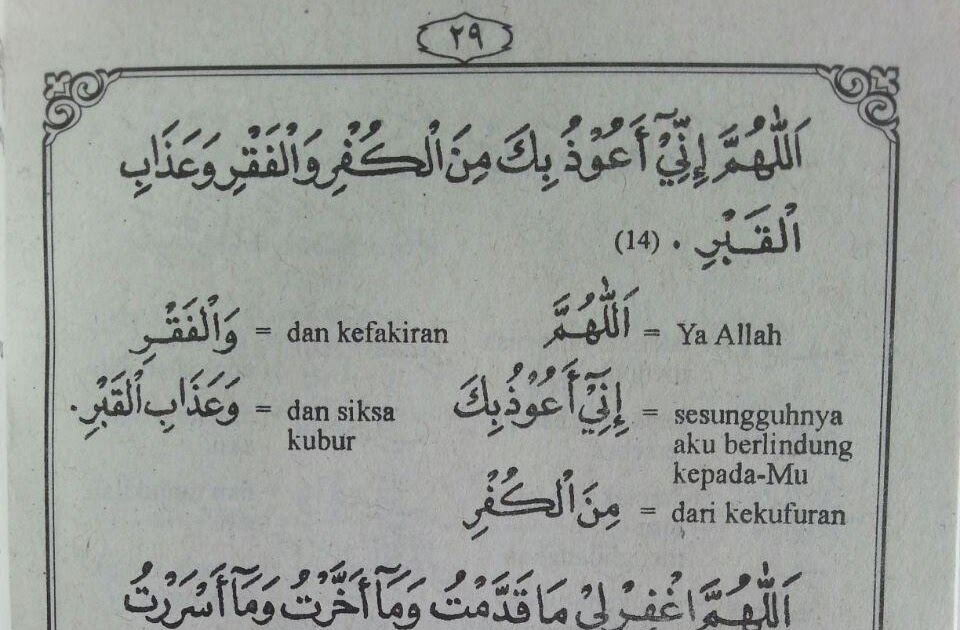 ٢٩
اَللّٰهُمَّ إِنِّيْٓ أَعُوْذُ بِكَ مِنَ الْكُفْرِ وَالْفَقْرِ وَعَذَابِ
الْقَبْرِ . (14)
اَللّٰهُمَّ = Ya Allah
إِنِّيْٓ أَعُوْذُ بِكَ = sesungguhnya
aku berlindung
kepada-Mu
مِنَ الْكُفْرِ = dari kekufuran
وَالْفَقْرِ = dan kefakiran
وَعَذَابِ الْقَبْرِ . = dan siksa
kubur
اَللّٰهُمَّ اغْفِرْ لِيْ مَا قَدَّمْتُ وَمَآ أَخَّرْتُ وَمَآ أَسْرَرْتُ